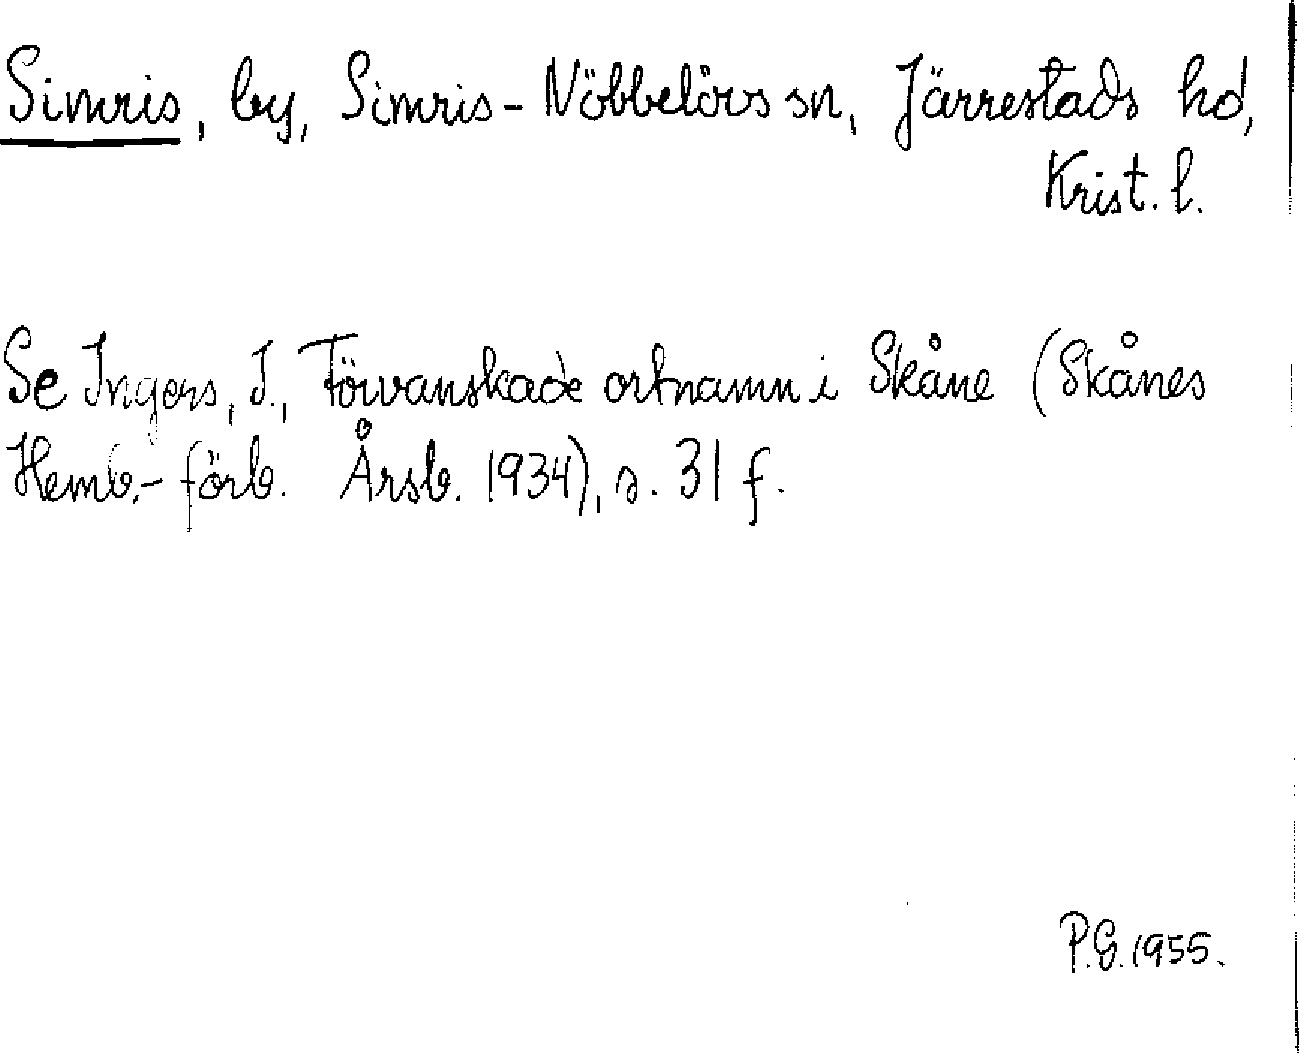 Simris, by, Simris-Nöbbelövs sn, Järrestads hd,
Krist. l.
Se Ingers, I., Förvanskade ortnamn i Skåne (Skånes
Hemb.-förb. Årsb. 1934), s. 31 f.
P.G. 1955.